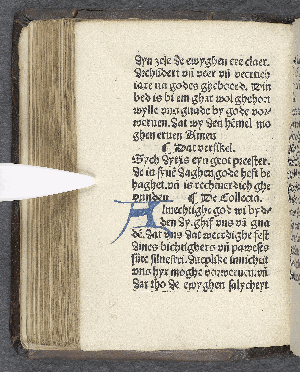 dyn zele de ewyghen ere claer.
Dichüdert vñ veer vñ veertich
iare na godes gheboerd. Win
bed is bi em ghar wol ghehort
wylle vns gnade by gode vor-
weruen. Dat wy den hēmel mo
ghen eruen Amen
¶ Dat versikel.
Sych dyt is eyn grot preester.
De in synē daghen gode heft be
haghet. vñ is rechtuerdich ghe
vunden. ¶ De Collecta.
Almechtighe god wi bydden
dy. ghif vns vñ gna
de. dat vns dat weerdighe fest
dines bichtighers vñ pawestes
sūte siluestri. Ewelike innicheit
vns hyr moghe vorweruen. vñ
dar tho de ewyghen salicheyt